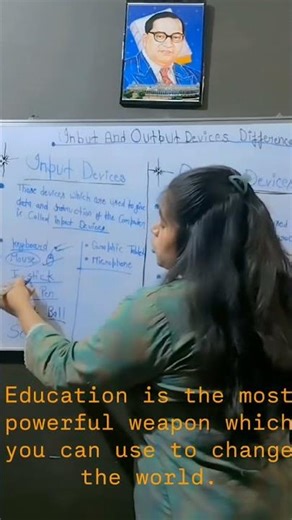 Input And Output Devices Difference
Input Devices
Devices
Those devices which are used to give
data and instruction of the Computer
is Called Input Devices.
Keyboard
Mouse
• Graphic Tablet
• Microphone
Pen
Ball
Education is the most
powerful weapon which
you can use to change
the world.